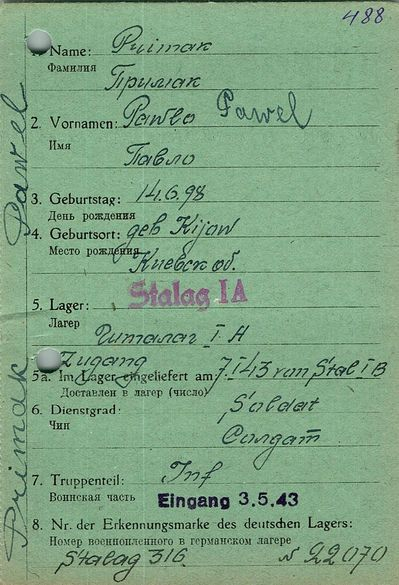 488
1. Name: Priimak
Фамилия
Примак
2. Vornamen: Pawlo Pawel
Имя
Павло
3. Geburtstag: 14.6.98
День рождения
4. Geburtsort: geb Kijow
Место рождения
Киевск об.
Stalag IA
5. Lager:
Лагер
Шталаг I A
Zugang
5a. Im Lager eingeliefert am 7.I 43 von Stal I B
Доставлен в лагер (число)
6. Dienstgrad: Soldat
Чин
Солдат
7. Truppenteil: Inf
Воинская часть
Eingang 3.5.43
8. Nr. der Erkennungsmarke des deutschen Lagers:
Номер военнопленного в германском лагере
Stalag 316 № 22070
Priimak Pawel